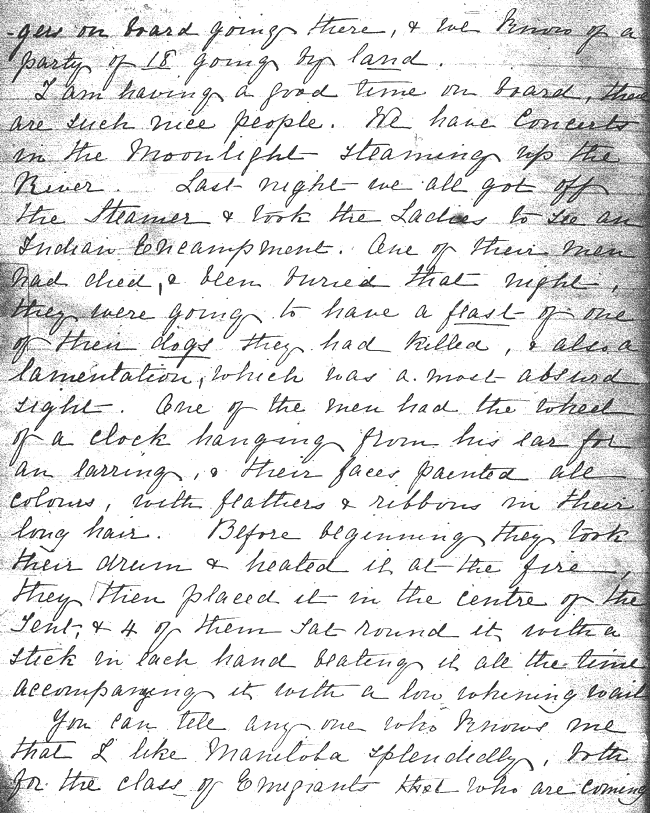 -gers on board going there, & we know of a
party of 18 going by land.
I am having a good time on board, there
are such nice people. We have Concerts
in the Moonlight steaming up the
River. Last night we all got off
the Steamer & took the Ladies to see an
Indian Encampment. One of their men
had died, & been buried that night,
they were going to have a feast of one
of their dogs they had killed, & also a
lamentation, which was a most absurd
sight. One of the men had the wheel
of a clock hanging from his ear for
an earring, & their faces painted all
colours, with feathers & ribbons in their
long hair. Before beginning they took
their drum & heated it at the fire,
they then placed it in the centre of the
Tent, & 4 of them sat round it with a
stick in each hand beating it all the time
accompanying it with a low whening wail
You can tell any one who knows me
that I like Manitoba splendedly, both
for the class of Emegrants that who are coming